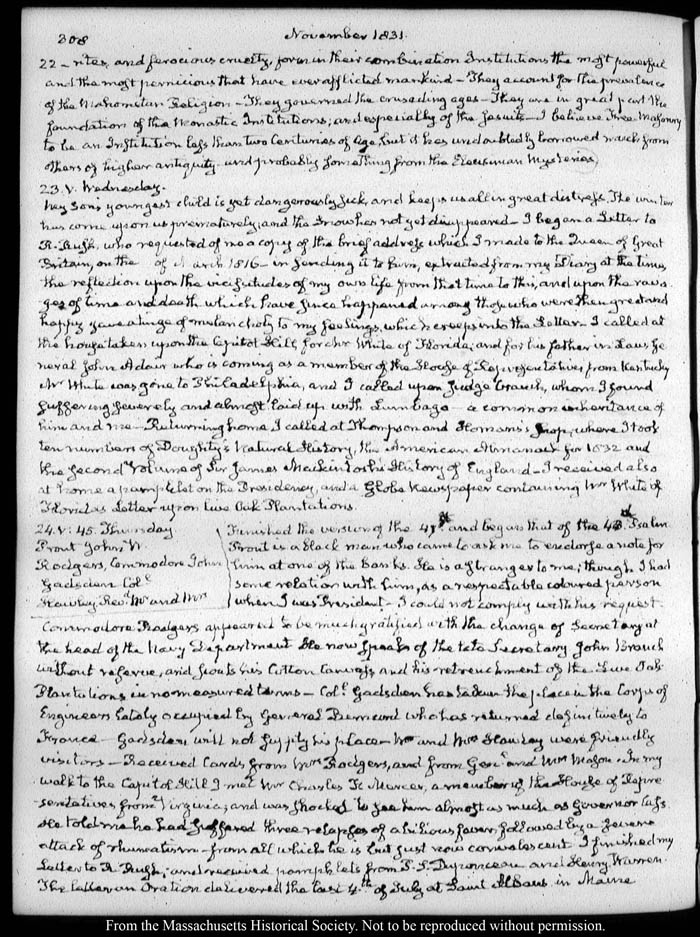 308
November 1831.
22 – rites, and ferocious cruelty, form in their combination Institutions the most powerful
and the most pernicious that have ever afflicted mankind – They account for the prevalence
of the Mahometan Religion – They governed the crusading ages – They are in great part the
foundation of the Monastic Institutions; and especially of the Jesuits – I believe Free-Masonry
to be an Institution less than two Centuries of age, but it has undoubtedly borrowed much from
others of higher antiquity – and probably something from the Eleusinian Mysteries.
23. V. Wednesday.
My Son's youngest child is yet dangerously sick, and keeps us all in great distress. The winter
has come upon us prematurely, and the snow has not yet disappeared – I began a Letter to
R. Rush, who requested of me a copy of the brief address which I made to the Queen of Great
Britain, on the of March 1816 – in sending it to him, extracted from my Diary at the time,
the reflection upon the vicissitudes of my own life from that time to this, and upon the rava-
ges of time and death which have since happened among those who were then great and
happy gave a tinge of melancholy to my feelings, which creeps into the Letter – I called at
the house taken upon the Capitol Hill, for Mr White of Florida, and for his father in Law Ge
neral John Adair who is coming as a member of the House of Representatives from Kentucky
Mr White was gone to Philadelphia, and I called upon Judge Cranch, whom I found
suffering severely and almost laid up with Lumbago – a common inheritance of
him and me – Returning home I called at Thompson and Homans's shop, where I took
ten numbers of Doughty's Natural History, the American Almanac for 1832 and
the second Volume of Sir James Mackintosh's History of England – I received also
at home a pamphlet on the Presidency, and a Globe Newspaper containing Mr White of
Florida's Letter upon Live Oak Plantations.
24. V: 45. Thursday
Prout John W.
Rodgers, Commodore John
Gadsden Coll.
Hawley Revd. Mr and Mrs
Finished the version of the 47th and began that of the 48th Psalm
Prout is a black man who came to ask me to endorse a note for
him at one of the Banks. He is a stranger to me; though I had
some relation with him, as a respectable coloured person
when I was President – I could not comply with his request.
Commodore Rodgers appeared to be much gratified with the change of Secretary at
the head of the Navy Department He now speaks of the late Secretary John Branch
without reserve, and scouts his Cotton Canvass and his retrenchment of the Live Oak
Plantations in no measured terms – Coll. Gadsden has taken the place in the Corps of
Engineers lately occupied by General Bernard who has returned definitively to
France – Gadsden will not supply his place – Mr and Mrs Hawley were friendly
visitors – Received Cards from Mrs Rodgers, and from Genl and Mrs Macomb – In my
walk to the Capitol Hill I met Mr Charles F. Mercer, a member of the House of Repre
sentatives from Virginia; and was shocked to see him almost as much as Governor Cass.
He told me he had suffered three relapses of a bilious fever, followed by a severe
attack of rheumatism – from all which he is but just now convalescent I finished my
Letter to R Rush; and received pamphlets from P. S. Duponceau and Henry Warren.
The latter an Oration delivered the last 4th of July at Saint Albans in Maine
From the Massachusetts Historical Society. Not to be reproduced without permission.